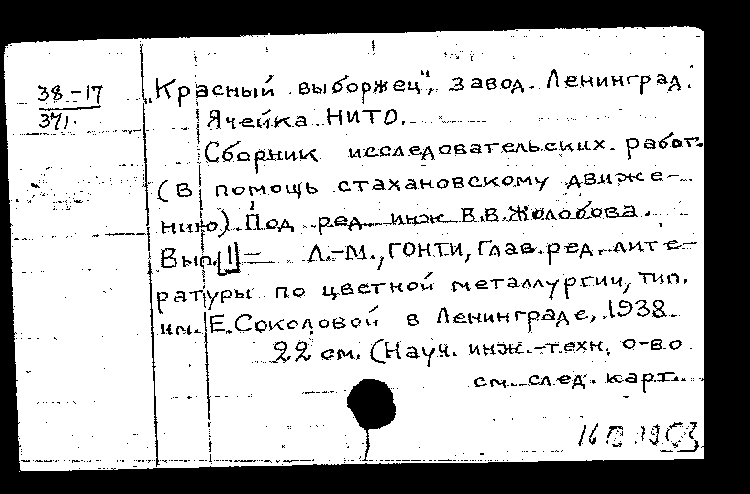 38-17
371.
„Красный выборжец", завод. Ленинград.
Ячейка НИТО.
Сборник исследовательских работ.
(В помощь стахановскому движе-
нию). Под ред. инж В.В.Жолобова.
Вып. 1 - Л.-М., ГОНТИ, Глав.ред.лите-
ратуры по цветной металлургии, тип.
им. Е.Соколовой в Ленинграде, 1938
22 см. (Науч. инж.-техн. о-во
см. след. карт.